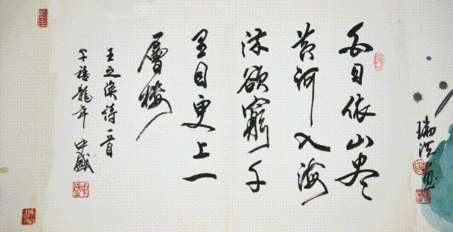 白日依山尽
黄河入海
流欲窮千
里目更上一
層楼
王之涣诗一首
千禧龍年